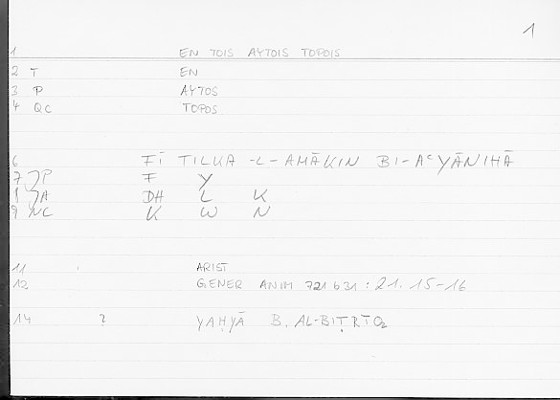 1
1 EN TOIS AYTOIS TOPOIS
2 T EN
3 P AYTOS
4 QC TOPOS
6 FĪ TILKA -L- AMĀKIN BI-AʿYĀNIHĀ
7 JP F Y
8 JA DH L K
9 NC K W N
11 ARIST
12 GENER ANIM 721 b31 : 21. 15-16
14 ? YAḤYĀ B. AL-BIṬRĪQ